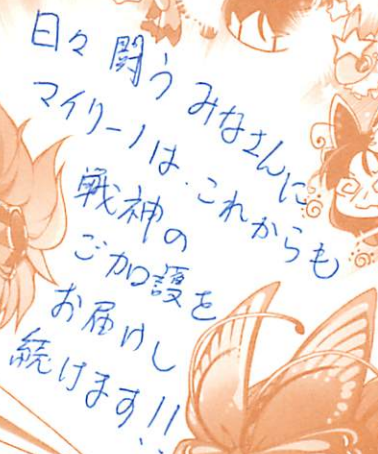 日々闘うみなさんに
マイリーノは、これからも
戦神の
ご加護を
お届けし
続けます!!